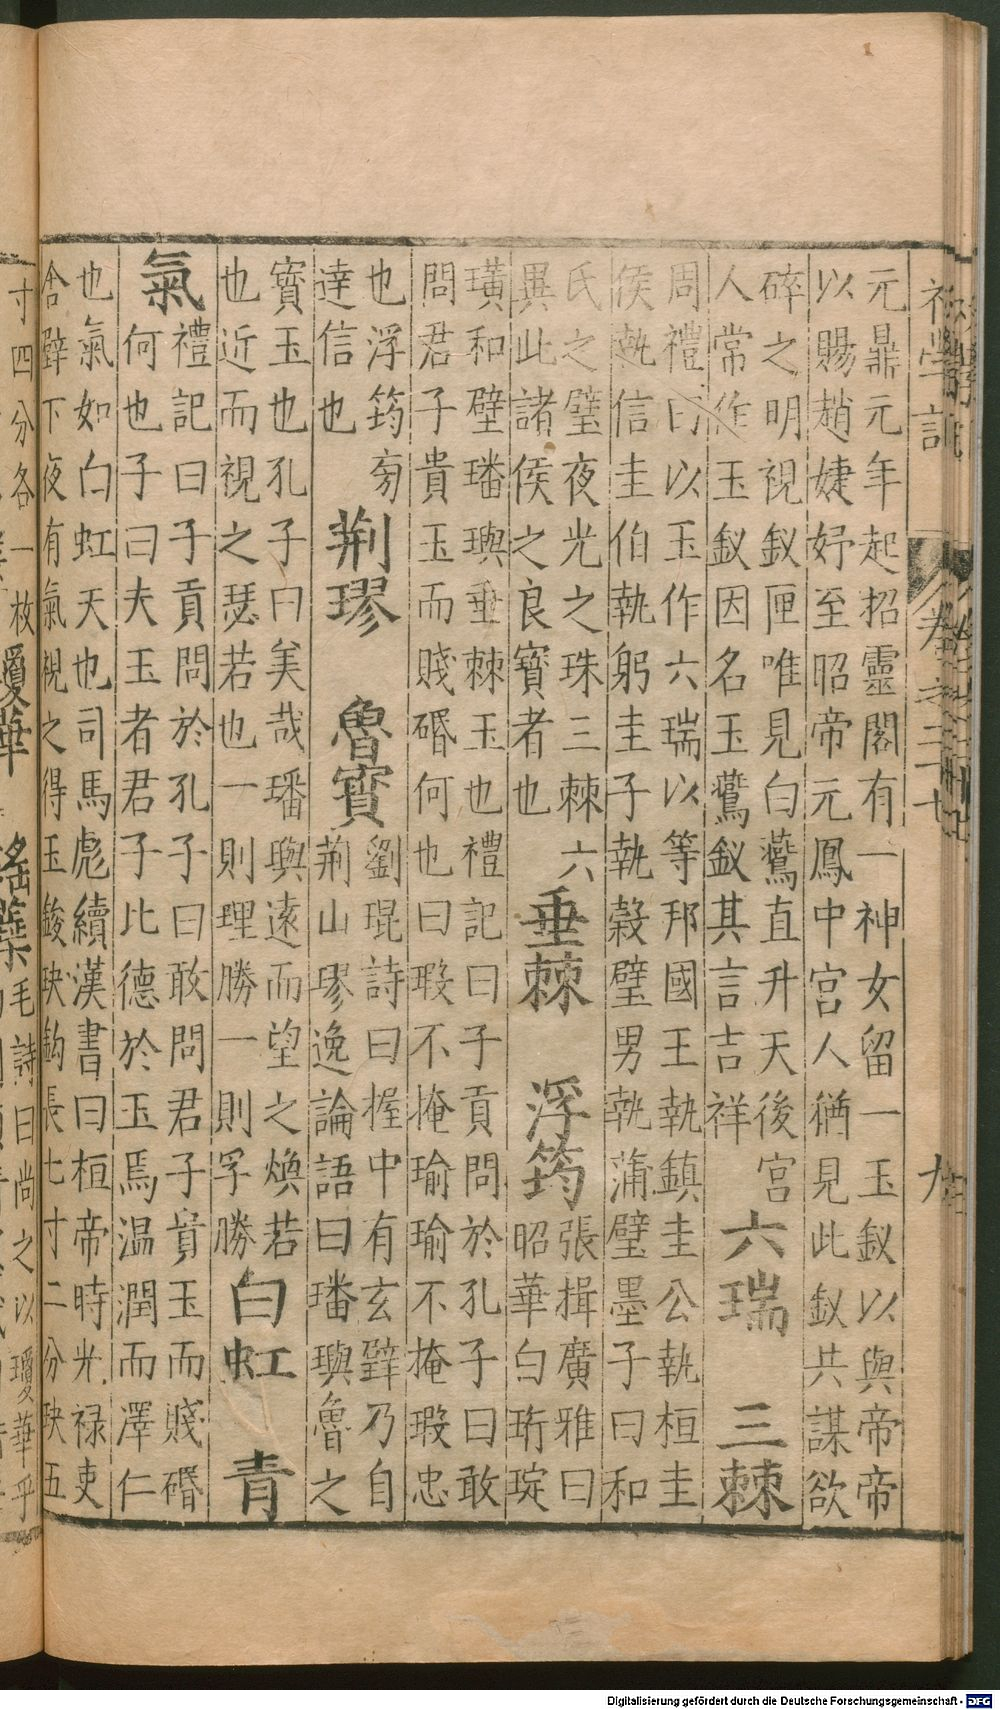 初學記 卷之二十七 九
元鼎元年起招靈閣有一神女留一玉釵以與帝帝
以賜趙婕妤至昭帝元鳳中宮人猶見此釵共謀欲
碎之明視釵匣唯見白鷰直升天後宮
人常作玉釵因名玉鷰釵其言吉祥
六瑞 三棘
周禮曰以玉作六瑞以等邦國王執鎮圭公執桓圭
侯執信圭伯執躬圭子執榖璧男執蒲璧墨子曰和
氏之璧夜光之珠三棘六
異此諸侯之良寳者也
垂棘 浮筠
張揖廣雅曰
昭華白珩琁
璜和璧璠璵垂棘玉也禮記曰子貢問於孔子曰敢
問君子貴玉而賤碈何也曰瑕不掩瑜瑜不掩瑕忠
也浮筠旁
達信也
荆璆 魯寳
劉琨詩曰握中有玄璧乃自
荆山璆逸論語曰璠璵魯之
寳玉也孔子曰美哉璠璵遠而望之煥若
也近而視之瑟若也一則理勝一則孚勝
白虹 青
氣
禮記曰子貢問於孔子曰敢問君子貴玉而賤碈
何也子曰夫玉者君子比德於玉焉温潤而澤仁
也氣如白虹天也司馬彪續漢書曰桓帝時光禄吏
舍壁下夜有氣視之得玉玦鈎長七寸二分玦五
寸四分各一枚
瓊華 瑤蘂
毛詩曰尚之以瓊華乎
Digitalisierung gefördert durch die Deutsche Forschungsgemeinschaft - DFG